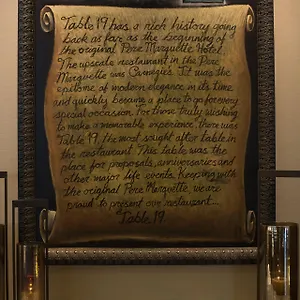 Table 19 has a rich history going
back as far as the beginning of
the original Pere Marquette Hotel.
The upscale restaurant in the Pere
Marquette was Carnegie's. It was the
epitome of modern elegance in its time
and quickly became a place to go for every
special occasion. For those truly wishing
to make a memorable experience there was
Table 19, the most sought after table in
the restaurant. This table was the
place for proposals, anniversaries and
other major life events. Keeping with
the original Pere Marquette, we are
proud to present our restaurant...
Table 19